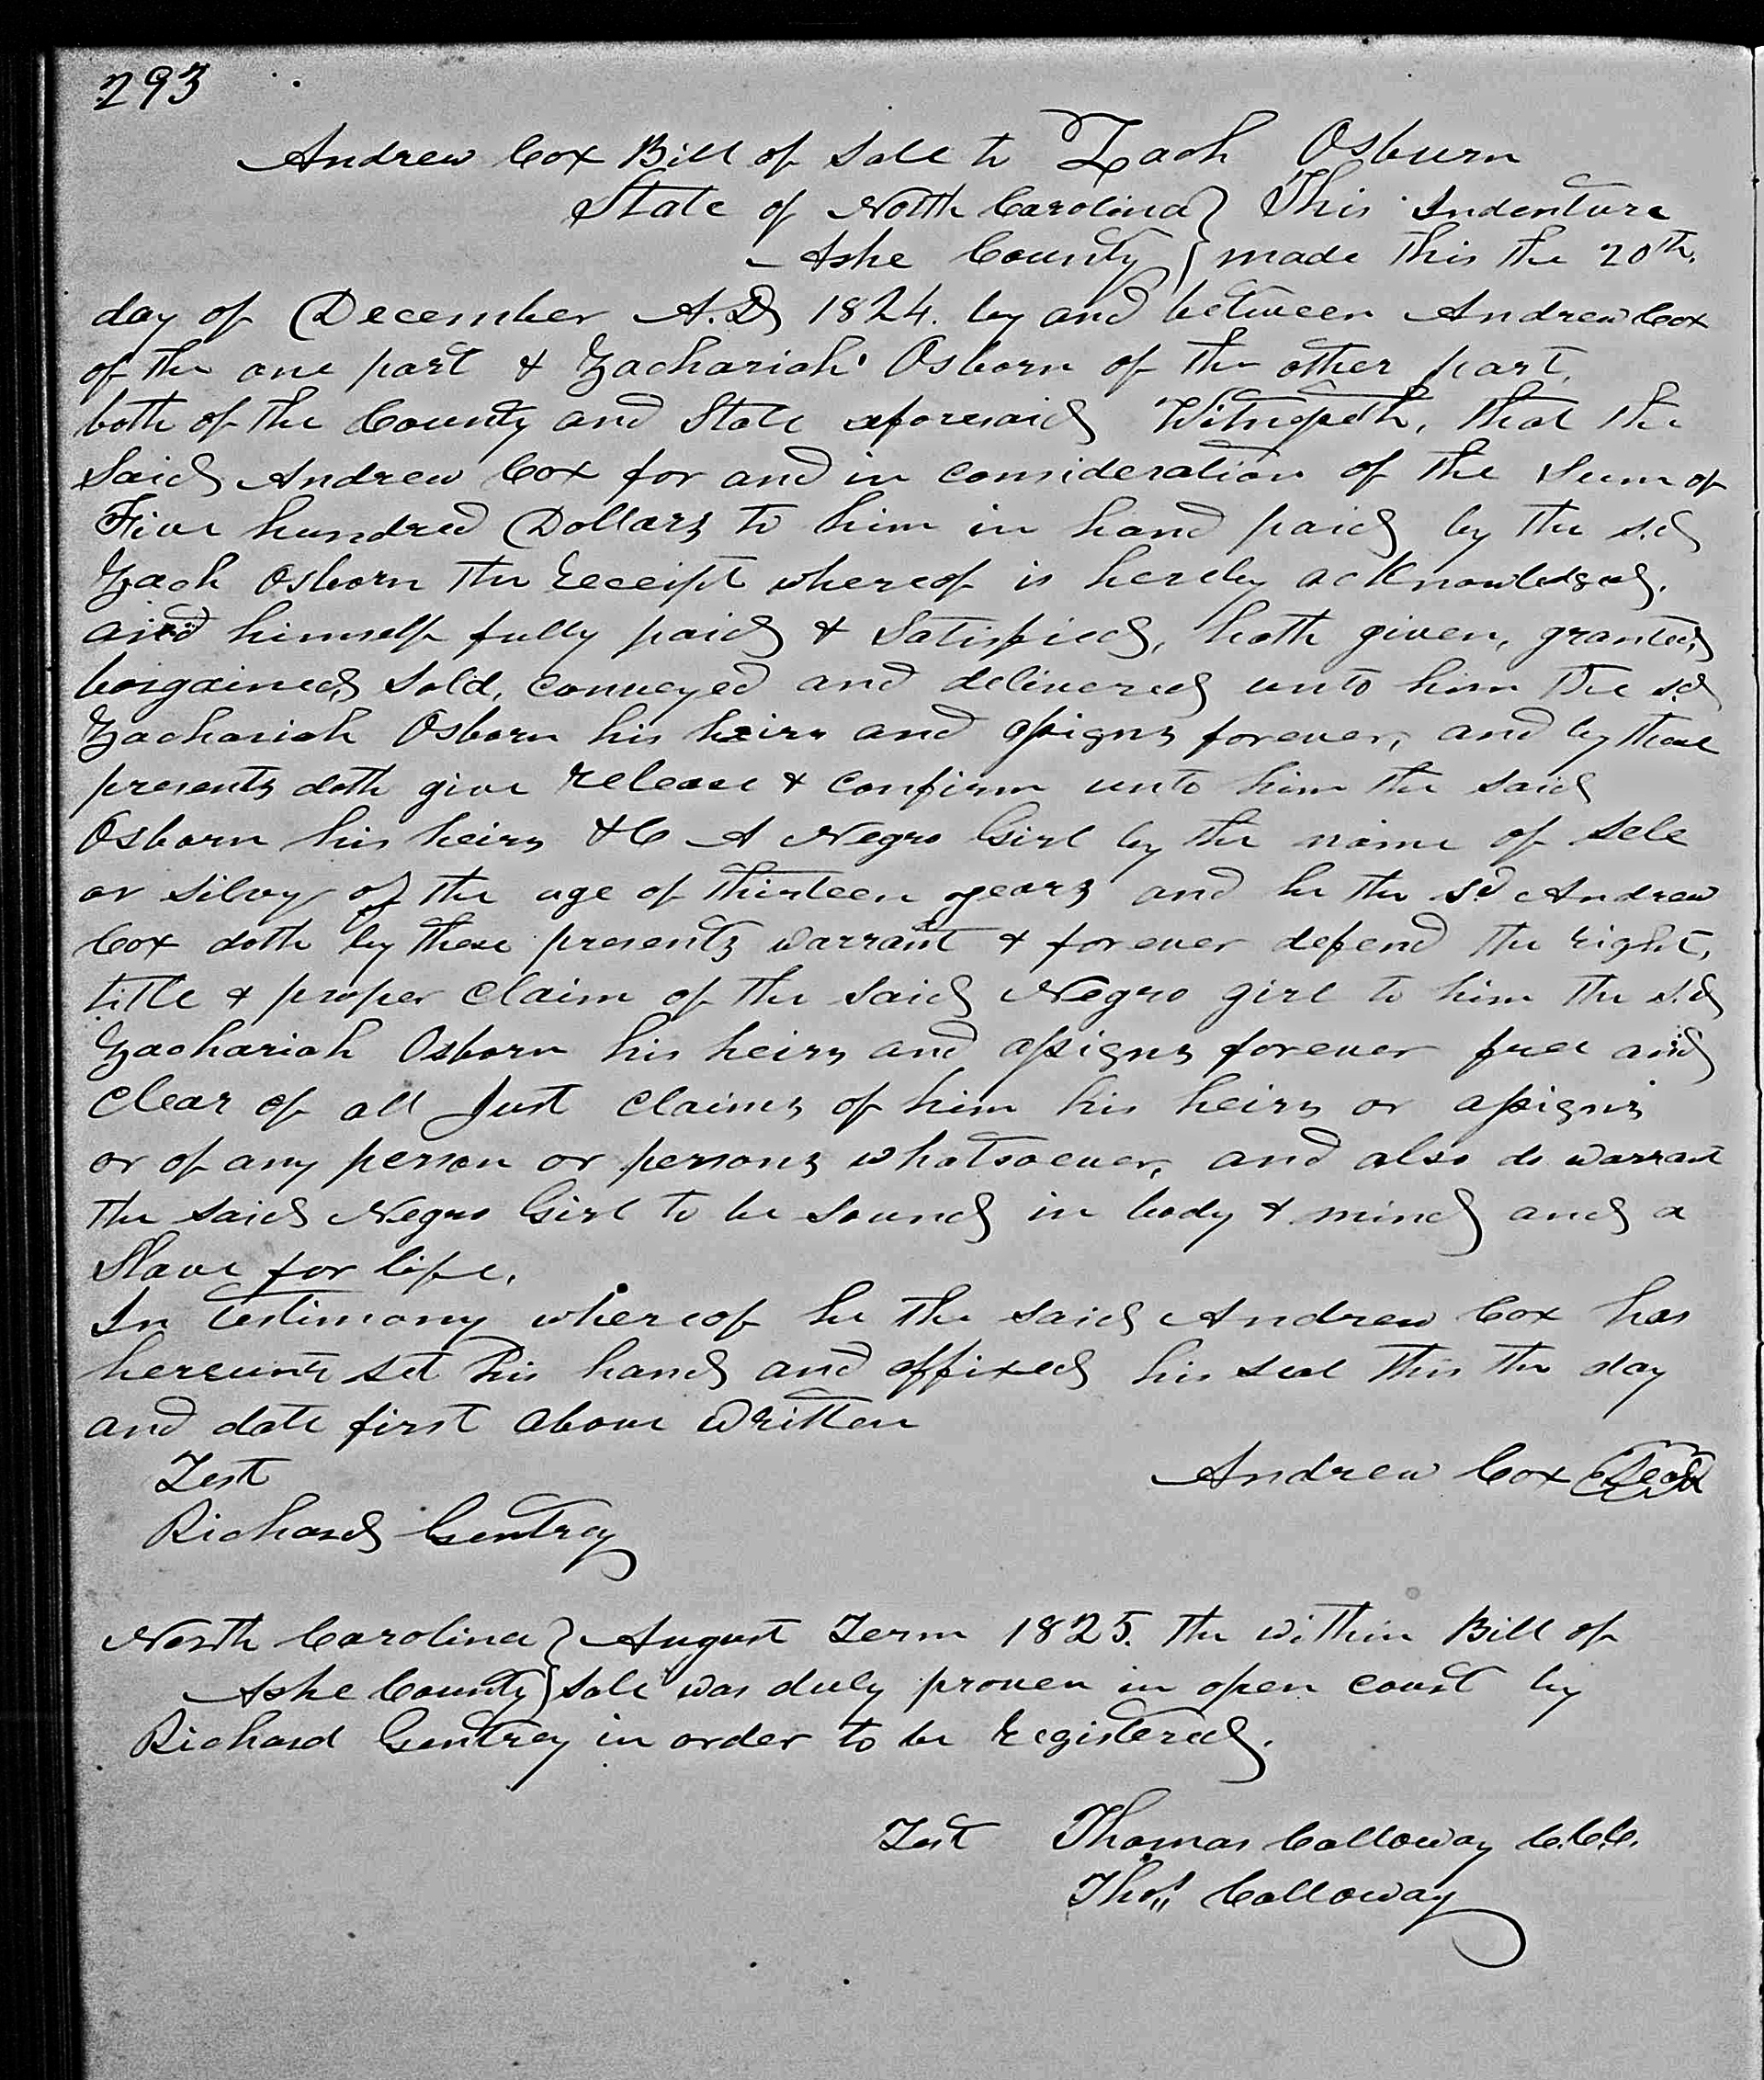 293
Andrew Cox Bill of Sale to Zach Osburn
State of North Carolina } This Indenture
Ashe County } made this the 20th.
day of December A.D 1824. by and between Andrew Cox
of the one part & Zachariah Osborn of the other part,
both of the County and State aforesaid Witnesseth, that the
Said Andrew Cox for and in consideration of the Sum of
Five hundred Dollars to him in hand paid by the s.d
Zach Osborn the receipt whereof is hereby acknowledged.
and himself fully paid & Satisfied, hath given, granted,
bargained, Sold, conveyed and delivered unto him the sd
Zachariah Osborn his heirs and assigns forever, and by these
presents doth give release & confirm unto him the said
Osborn his heirs &C A Negro Girl by the name of Sele
or Silvy of the age of thirteen years and he the sd Andrew
Cox doth by these presents warrant & forever defend the right,
title & proper claim of the said Negro girl to him the s.d
Zachariah Osborn his heirs and assigns forever free and
Clear of all Just claims of him his heirs or assigns
or of any person or persons whatsoever, and also do warrant
the said Negro Girl to be sound in body & mind and a
Slave for life.
In testimony whereof he the said Andrew Cox has
hereunto set his hand and affixed his seal this the day
and date first above written
Test
Andrew Cox Seal
Richard Gentry
North Carolina } August Term 1825. the within Bill of
Ashe County } Sale was duly proven in open court by
Richard Gentry in order to be registered.
Test Thomas Calloway C.C.C.
Thos. Calloway